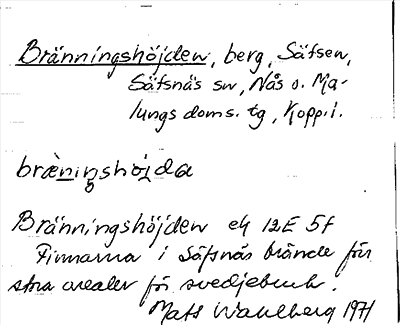 Bränningshöjden, berg, Säfsen,
Säfsnäs sn, Nås o. Ma-
lungs doms. tg, Kopp.l.
brä̀ningshöjda
Bränningshöjden ek 12E 5f
Finnarna i Säfsnäs brände för
stora arealer för svedjebruk.
Mats Wahlberg 1971